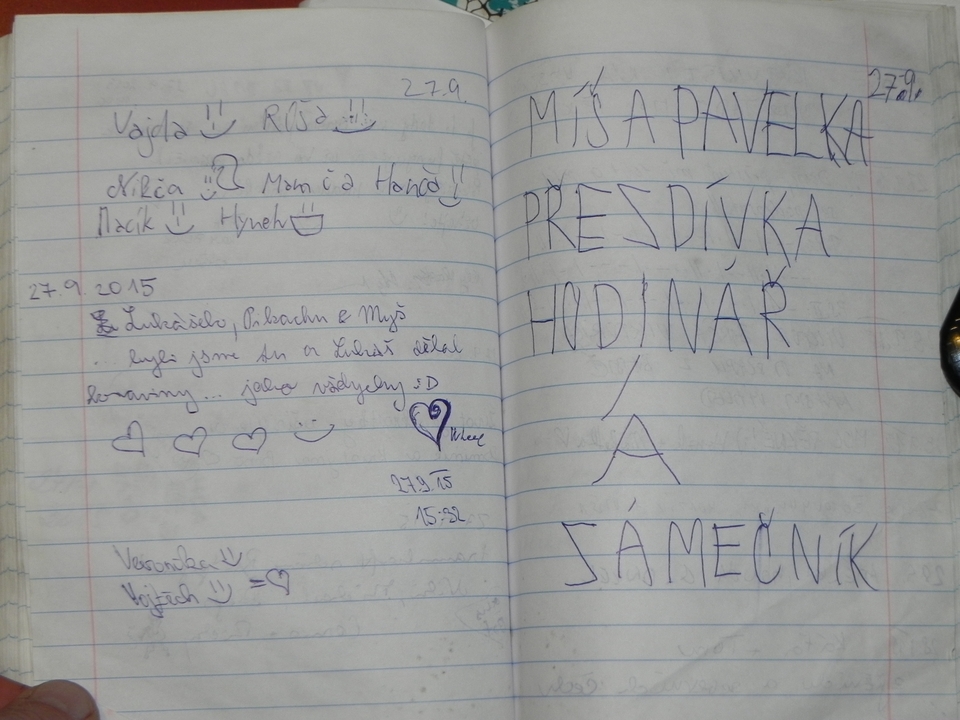 27.9.
Vajda Ríša
Nikča Mamča Hanča
Macík Hynek
27.9.2015
Lukášek, Pikachu & Myš
... byli jsme tu a Lukáš dělal
koraviny... jako vždycky :D
27.9.15
15:32
Veronika
Vojtěch =
27.9.
MÍŠA PAVELKA
PŘESDÍVKA
HODINÁŘ
Á
SÁMEČNÍK